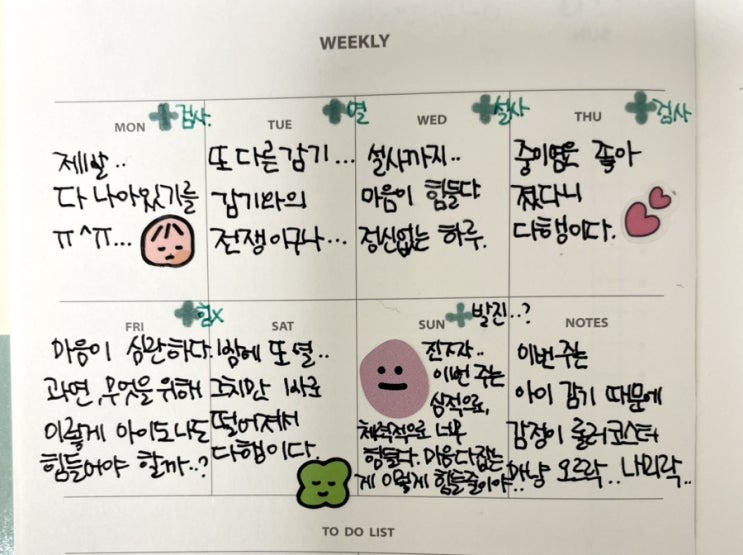 WEEKLY
MON
검사.
제발..
다 나아있기를
ㅠ^ㅠ...
TUE
열
또 다른 감기...
감기와의
전쟁이구나...
WED
설사
설사까지..
마음이 힘들다
정신없는 하루.
THU
검사
중이염은 좋아
졌다니
다행이다.
FRI
힘x
마음이 심란하다.
과연, 무엇을 위해
이렇게 아이도 나도
힘들어야 할까..?
SAT
밤에 또 열..
그치만 1사로
떨어져서
다행이다.
SUN
발진..?
진짜..
이번 주는
심적으로,
체력적으로 너무
힘들다. 마음 다잡는
게 이렇게 힘들줄이야..
NOTES
이번주는
아이 감기 때문에
감정이 롤러코스터
마냥 오르락.. 내리락..
TO DO LIST